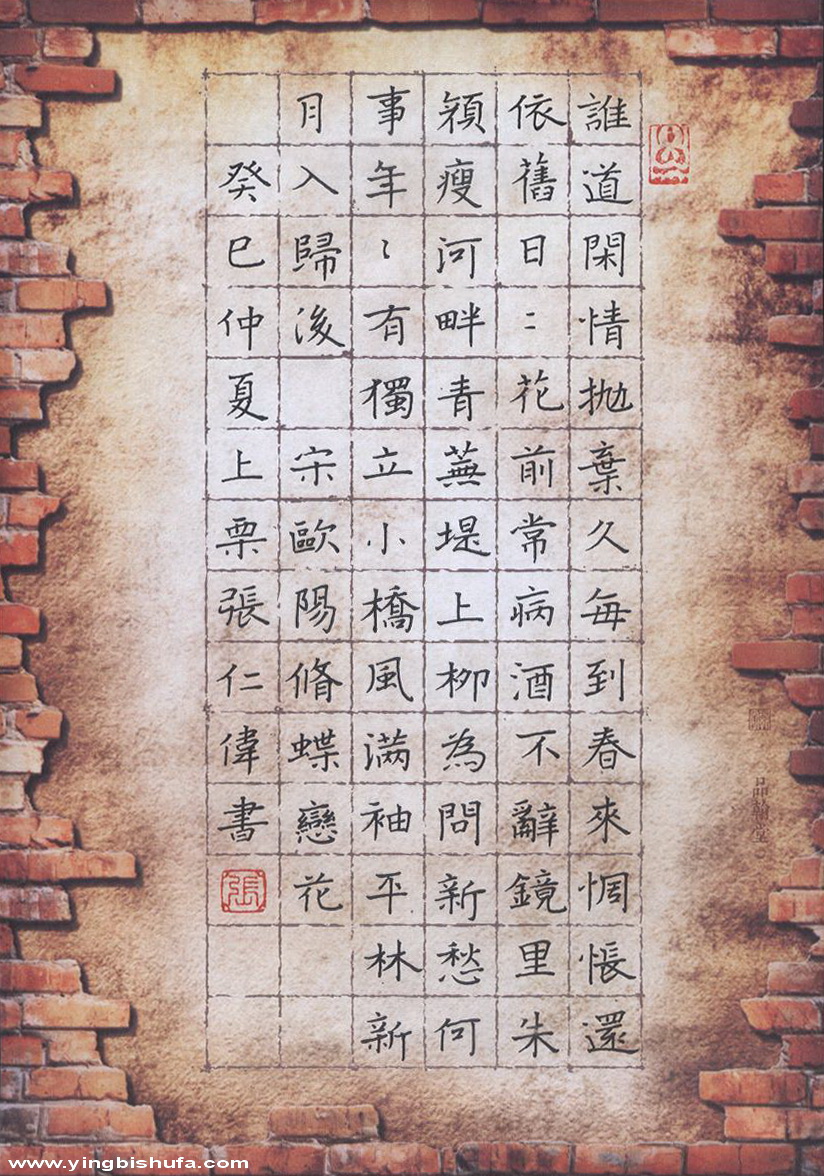 誰道閑情抛棄久每到春來惆悵還
依舊日〻花前常病酒不辭鏡里朱
顏瘦河畔青蕪堤上柳為問新愁何
事年〻有獨立小橋風滿袖平林新
月人歸後 宋歐陽脩蝶戀花
癸巳仲夏上栗張仁偉書
張
www.yingbishufa.com